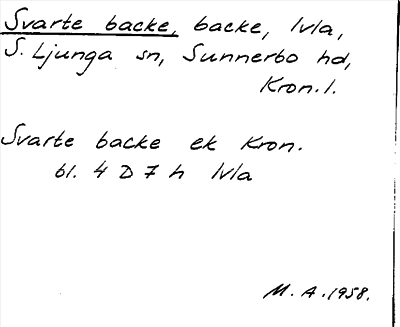 Svarte backe, backe, lvla,
S. Ljunga sn, Sunnerbo hd,
Kron. l.
Svarte backe ek Kron.
bl. 4 D 7 h lvla
M. A. 1958.